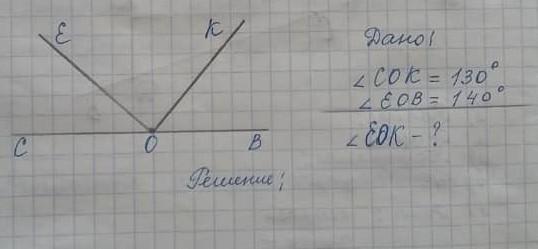 E K
Дано:
∠COK = 130°
∠EOB = 140°
C O B
∠EOK - ?
Решение: